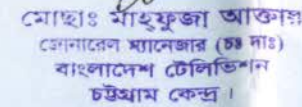 মোছাঃ মাহ্ফুজা আক্তার
জেনারেল ম্যানেজার (চঃ দাঃ)
বাংলাদেশ টেলিভিশন
চট্টগ্রাম কেন্দ্র।